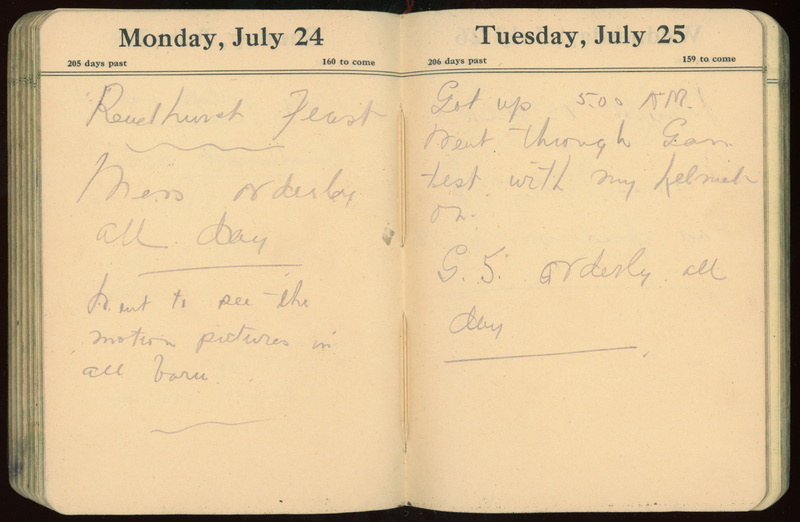 Monday, July 24
205 days past
160 to come
Feast
Mess orderly
all day
Went to see the
motion pictures in
barn.
Tuesday, July 25
206 days past
159 to come
Got up 5.00 A.M.
Went through Gas
test with my helmet
on.
G. S. orderly all
day